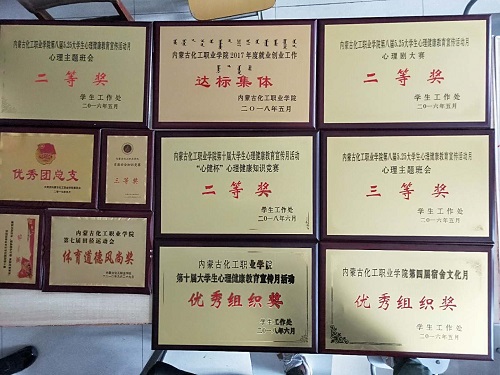 内蒙古化工职业学院第八届5.25大学生心理健康教育宣传活动月
心理主题班会
二等奖
学生工作处
二〇一六年五月
内蒙古化工职业学院2017年度就业创业工作
达标集体
内蒙古化工职业学院
二〇一八年五月
内蒙古化工职业学院第八届5.25大学生心理健康教育宣传活动月
心理剧大赛
二等奖
学生工作处
二〇一六年五月
优秀团总支
三等奖
内蒙古化工职业学院第十届大学生心理健康教育宣传月活动
“心健杯”心理健康知识竞赛
二等奖
学生工作处
二〇一八年六月
内蒙古化工职业学院第八届5.25大学生心理健康教育宣传活动月
心理主题班会
三等奖
学生工作处
二〇一六年五月
内蒙古化工职业学院
第七届田径运动会
体育道德风尚奖
内蒙古化工职业学院
第十届大学生心理健康教育宣传月活动
优秀组织奖
学生工作处
二〇一八年六月
内蒙古化工职业学院第四届宿舍文化月
优秀组织奖
学生工作处
二〇一六年六月